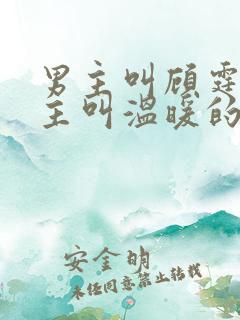 男主叫顾霆
主叫温暖的
安金明
未经同意禁止转载